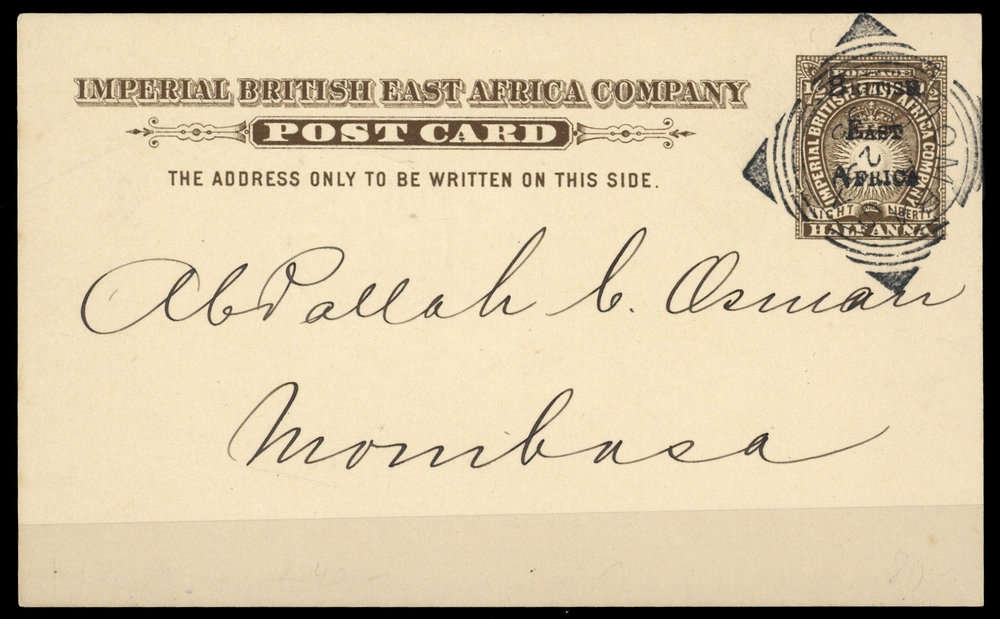 IMPERIAL BRITISH EAST AFRICA COMPANY
POST CARD
THE ADDRESS ONLY TO BE WRITTEN ON THIS SIDE.
BRITISH
EAST
AFRICA
IMPERIAL BRITISH EAST AFRICA COMPANY
LIGHT LIBERTY
HALF ANNA
Abdallah b. Osman
Mombasa